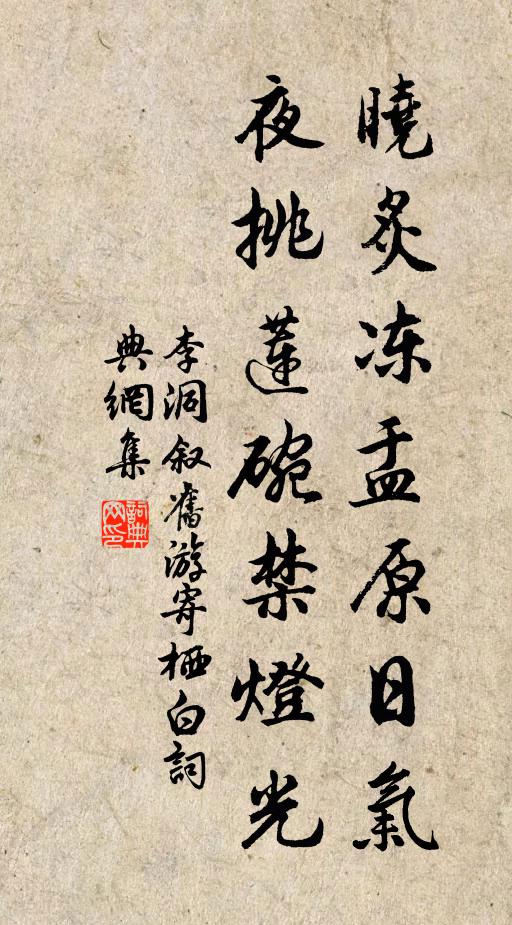 曉炙冻盂原日氣
夜挑莲碗禁燈光
李洞叙舊游寄栖白詞
典網集
詞典
网印